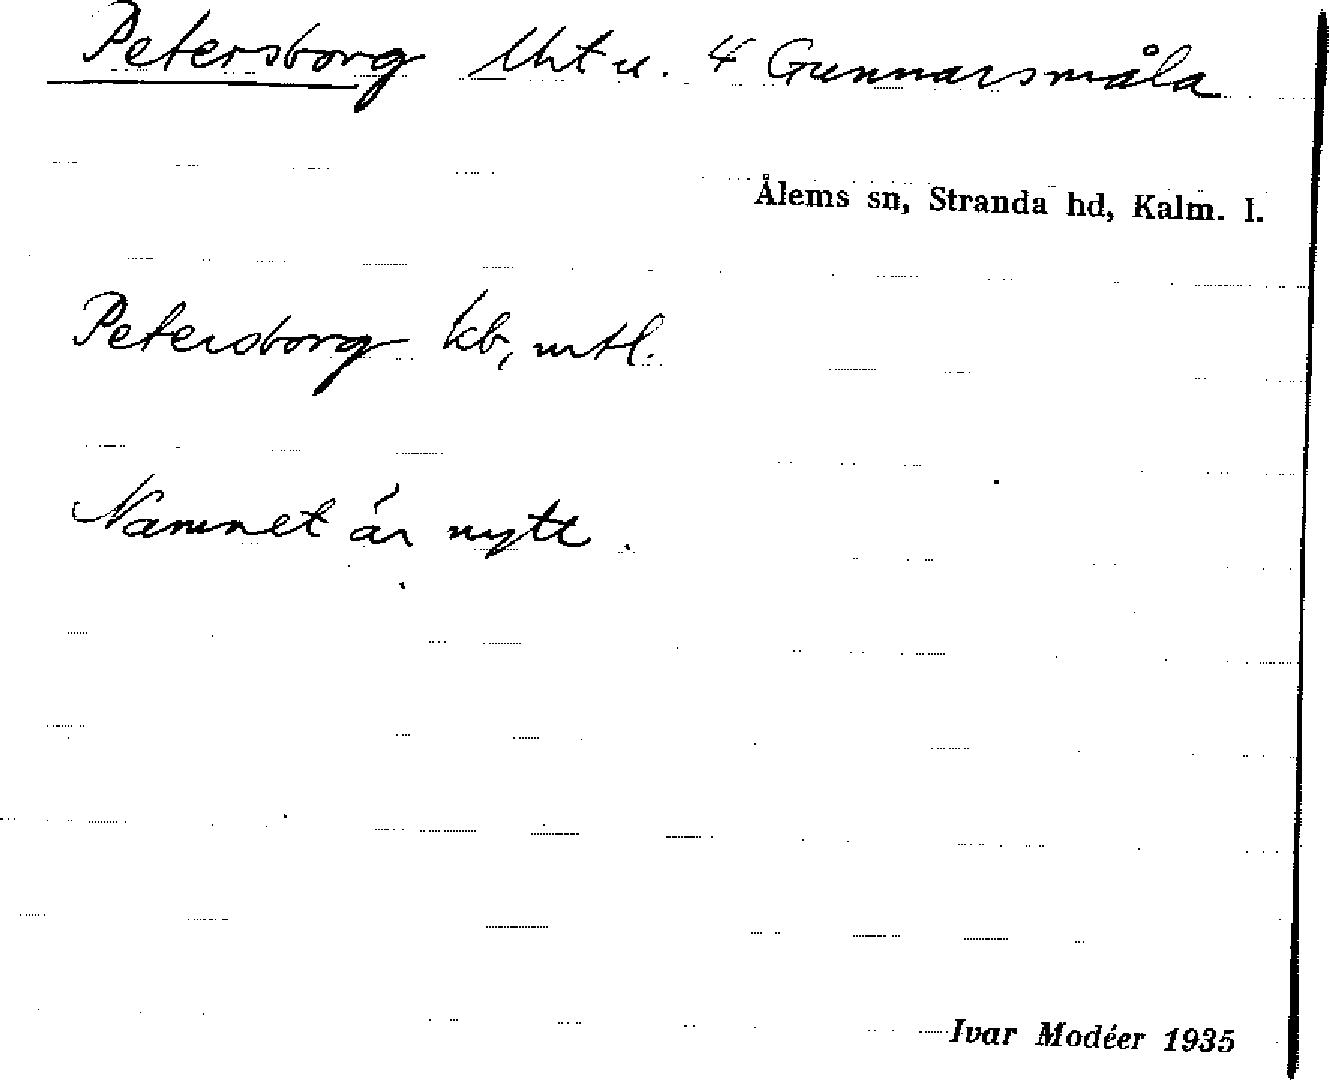 Petersborg lht u. 4 Gunnarsmåla
Ålems sn, Stranda hd, Kalm. l.
Petersborg kb, mtl.
Namnet är nytt.
Ivar Modéer 1935